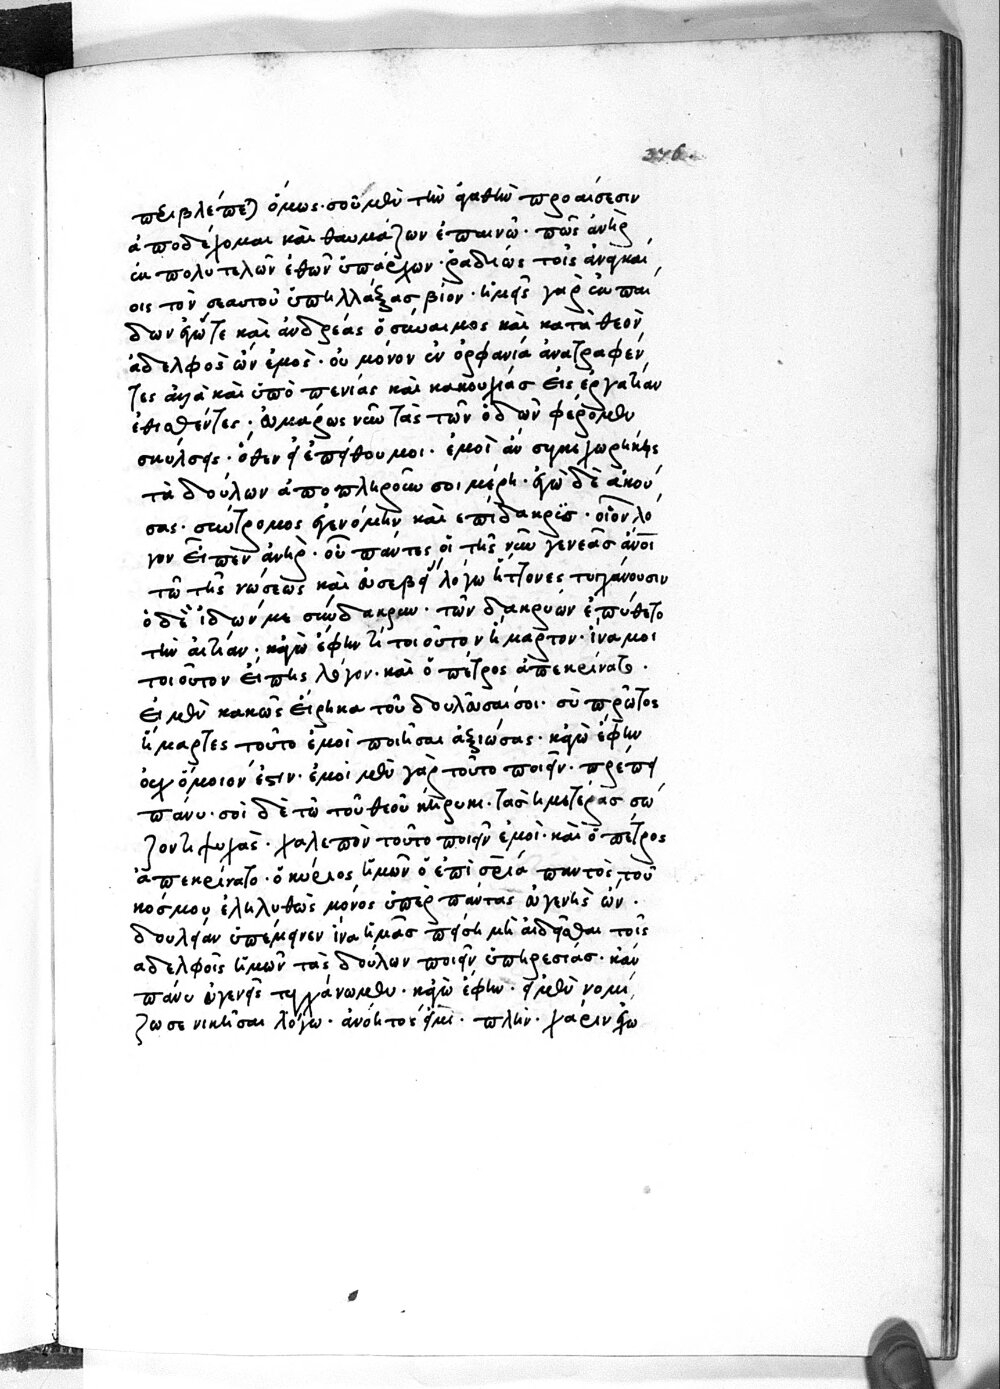 376.
περιβλέπεται) ὅμως· σοῦ μὲν τὴν ἀγαθὴν προαίρεσιν
ἀποδέχομαι καὶ θαυμάζων ἐπαινῶ· πῶς ἀνὴρ
ἐκ πολυτελῶν ἐθῶν ὑπάρχων· ῥαδίως τοῖς ἀναγκαί
οις τὸν σεαυτοῦ ὑπηλλάξας βίον· ἡμεῖς γὰρ ἐκ παί
δων ἐγώτε καὶ ἀνδρέας ὁ σύναιμος καὶ κατὰ θεὸν
ἀδελφὸς ὢν ἐμὸς· οὐ μόνον ἐν ὀρφανία ἀνατραφέν
τες ἀλλὰ καὶ ὑπὸ πενίας καὶ κακουχίας εἰς ἐργασίαν
ἐθισθέντες· εὐμαρῶς νῦν τὰς τῶν ὁδῶν φέρομεν
σκύλσεις· ὅθεν εἰ ἐπείθου μοι· ἐμοὶ ἂν συνεχωρήκης
τὰ δούλων ἀποπληροῦν σοι μέρη· ἐγὼ δὲ ἀκού
σας· σύντρομος ἐγενόμην καὶ ἐπίδακρυς· οἷον λό
γον εἶπεν ἀνὴρ· οὗ πάντες οἱ τῆς νῦν γενεᾶς ἄνοι
τῶ τῆς γνώσεως καὶ εὐσεβείας λόγω ἥττονες τυγχάνουσιν
ὁ δὲ ἰδών με σύνδακρυν· τῶν δακρύων ἐπύθετο
τὴν αἰτίαν· κἀγὼ ἔφην τί τοιοῦτον ἥμαρτον· ἵνα μοι
τοιοῦτον εἴπης λόγον· καὶ ὁ πέτρος ἀπεκρίνατο·
εἰ μὲν κακῶς εἴρηκα τοῦ δουλεῦσαί σοι· σὺ πρῶτος
ἥμαρτες τοῦτο ἐμοὶ ποιῆσαι ἀξιώσας· κἀγὼ ἔφην
οὐχ ὅμοιον ἐστιν· ἐμοὶ μὲν γὰρ τοῦτο ποιεῖν· πρέπει
πάνυ· σοὶ δὲ τῶ τοῦ θεοῦ κήρυκι· τὰς ἡμετέρας σώ
ζοντι ψυχὰς· χαλεπὸν τοῦτο ποιεῖν ἐμοὶ· καὶ ὁ πέτρος
ἀπεκρίνατο· ὁ κύριος ἡμῶν ὁ ἐπὶ σρία παντὸς τοῦ
κόσμου ἐληλυθὼς μόνος ὑπὲρ πάντας εὐγενὴς ὢν·
δουλείαν ὑπέμεινεν ἵνα ἡμᾶς πείση μὴ αἰδεῖσθαι τοῖς
ἀδελφοῖς ἡμῶν τὰς δούλων ποιεῖν ὑπηρεσίας· κἂν
πάνυ εὐγενεῖς τυγχάνωμεν· κἀγὼ ἔφην· εἰ μὲν νομί
ζω σε νικῆσαι λόγω· ἀνόητος εἰμι· πλὴν· χάριν ἔχω